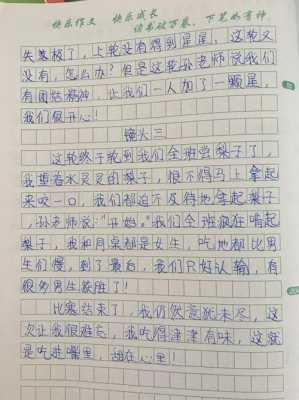 快乐作文 快乐成长
读书破万卷,下笔如有神
失落极了,上轮没有得到星星,这轮又
没有,怎么办?但是这轮孙老师说我们
有团结精神,让我们一人加了一颗星,
我们很开心!
镜头三
这轮终于轮到我们全班尝梨子了,
我望着水灵灵的梨子,恨不得马上拿起
来咬一口,我们都迫不及待地拿起梨子
,孙老师说:“开始。”我们全班疯狂啃起
梨子,我和同桌都是女生,吃地都比男
生们慢,到了最后,我们只好认输,有
很多男生获胜了!
比赛结束了,我仍然意犹未尽,这
次让我很难忘,我吃得津津有味,这就
是吃进嘴里,甜在心里!